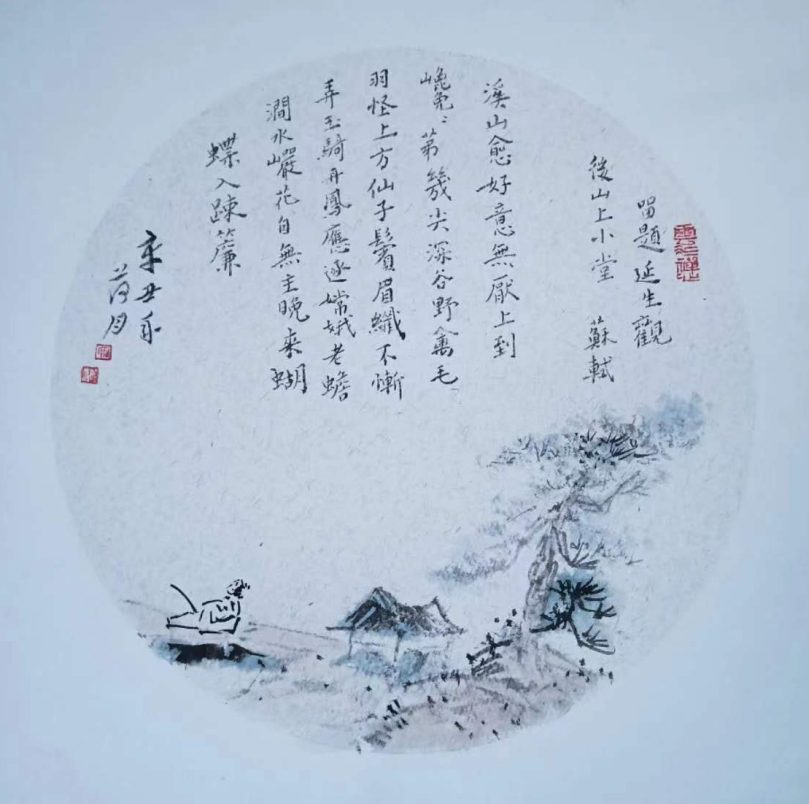 留題延生觀
後山上小堂 蘇軾
溪山愈好意無厭上到
巉〻第幾尖深谷野禽毛
羽怪上方仙子鬢眉纖不慚
弄玉騎丹鳳應逐嫦娥老蟾
澗水巖花自無主晚来蝴
蝶入疎簾
辛丑年
荷月